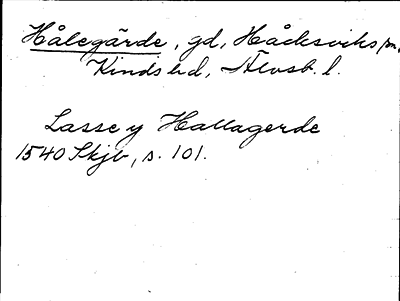 Hålegärde, gd, Håcksviks sn,
Kinds hd, Älvsb. l.
Lasse y Hallagerde
1540 Skjb, s. 101.